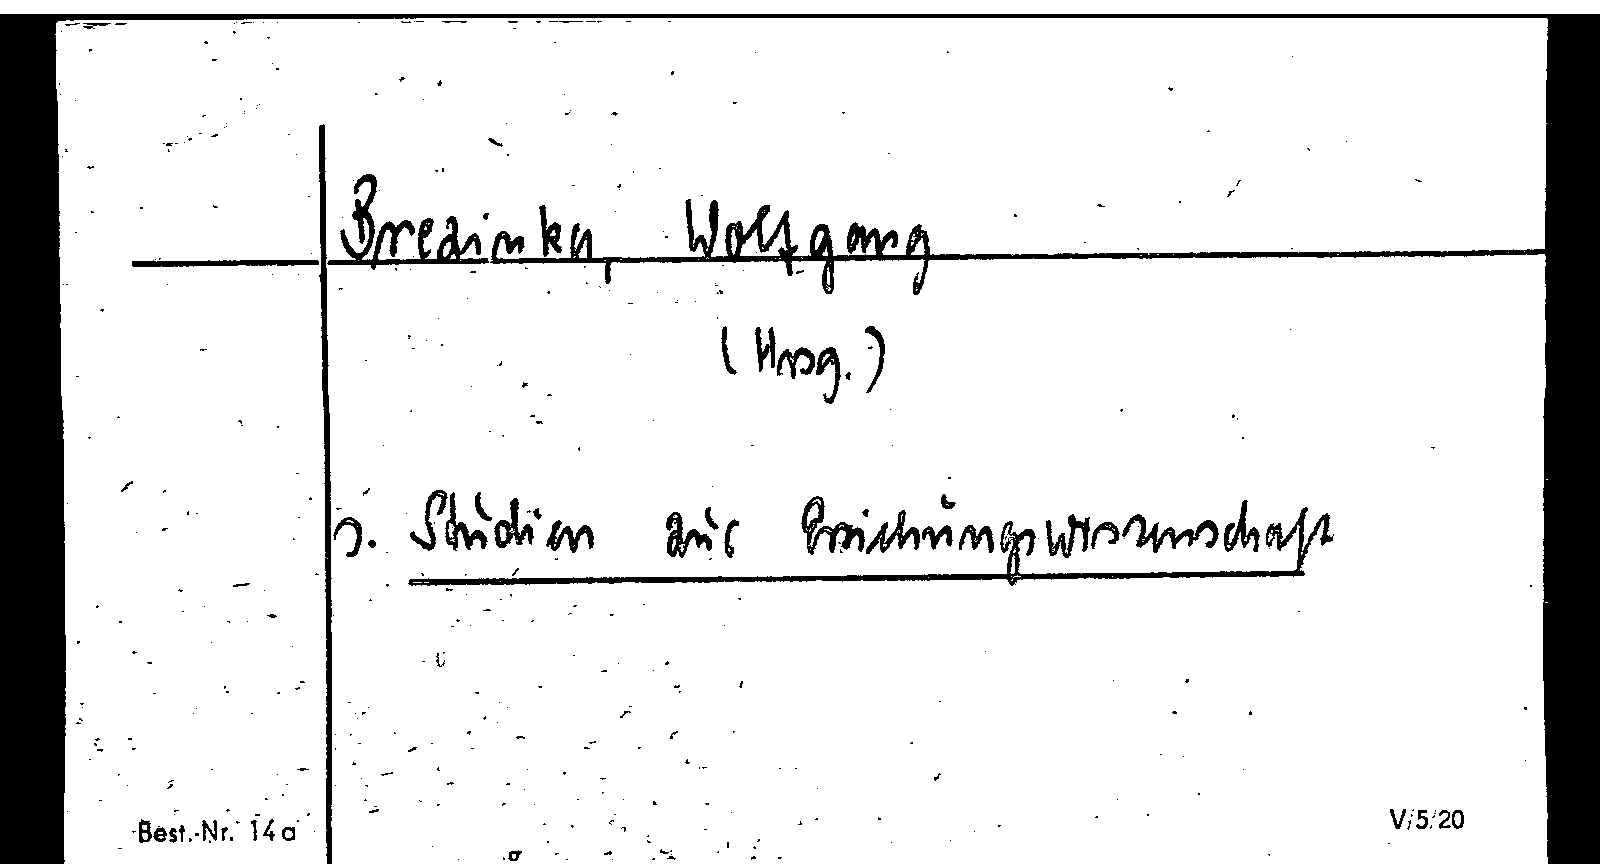 Brezinka, Wolfgang
(Hrsg.)
s. Studien zur Erziehungswissenschaft
Best.-Nr. 14a
V/5/20